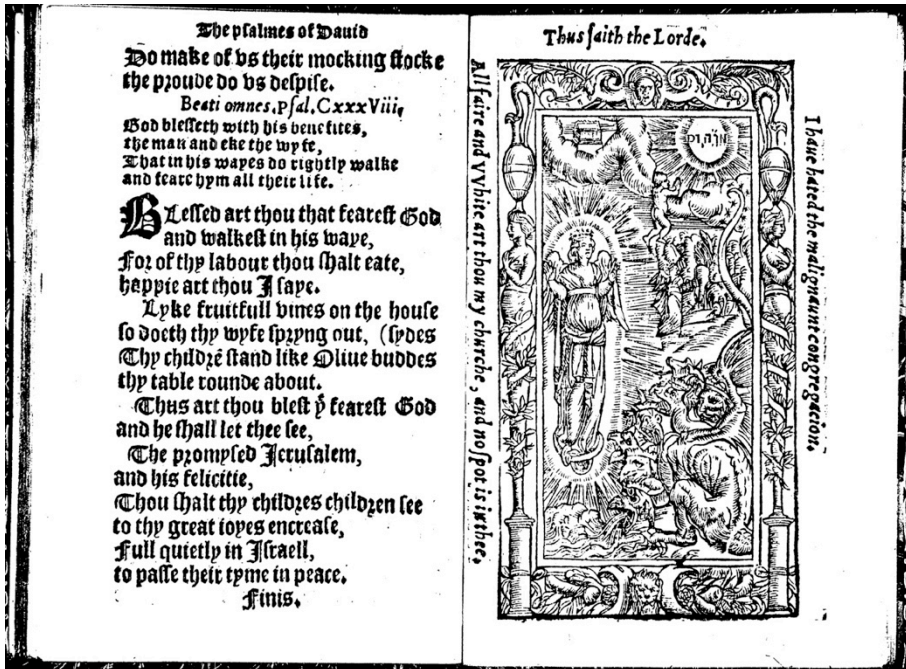 The psalmes of Dauid
Do make of vs their mocking stocke
the proude do vs despise.
Beati omnes. Psal. CxxxViii.
God blesseth with his benefites,
the man and eke the wyfe,
That in his wayes do rightly walke
and feare hym all their life.
BLessed art thou that fearest God
and walkest in his waye,
For of thy labour thou shalt eate,
happie art thou I saye.
Lyke fruitfull vines on the house
so doeth thy wyfe spryng out, (sydes
Thy childrē stand like Oliue buddes
thy table rounde about.
Thus art thou blest yͭ fearest God
and he shall let thee see,
The promysed Jerusalem,
and his felicitie,
Thou shalt thy childres children see
to thy great ioyes encrease,
Full quietly in Israell,
to passe their tyme in peace.
Finis.
Thus saith the Lorde.
All faire and vvhite art thou my churche, and no spot is in thee.
I haue hated the malignaunt congregacion.